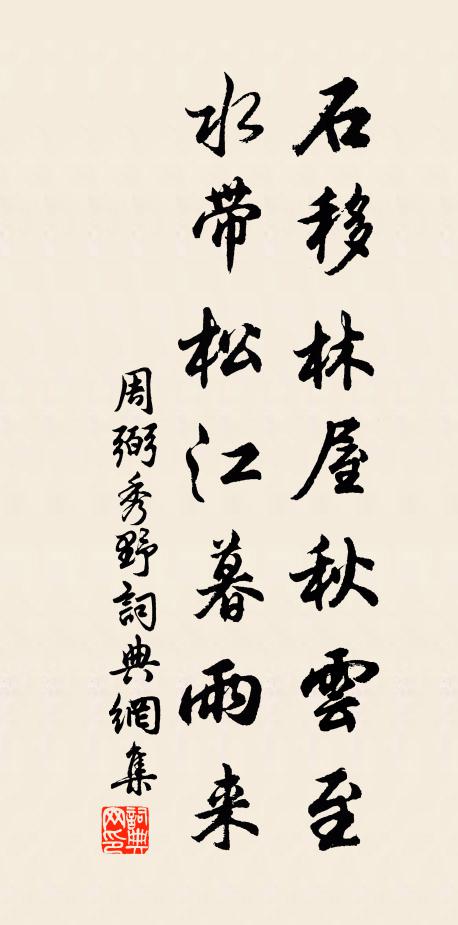 石移林屋秋雲至
水帶松江暮雨来
周弼秀野詞典網集
詞典
网印